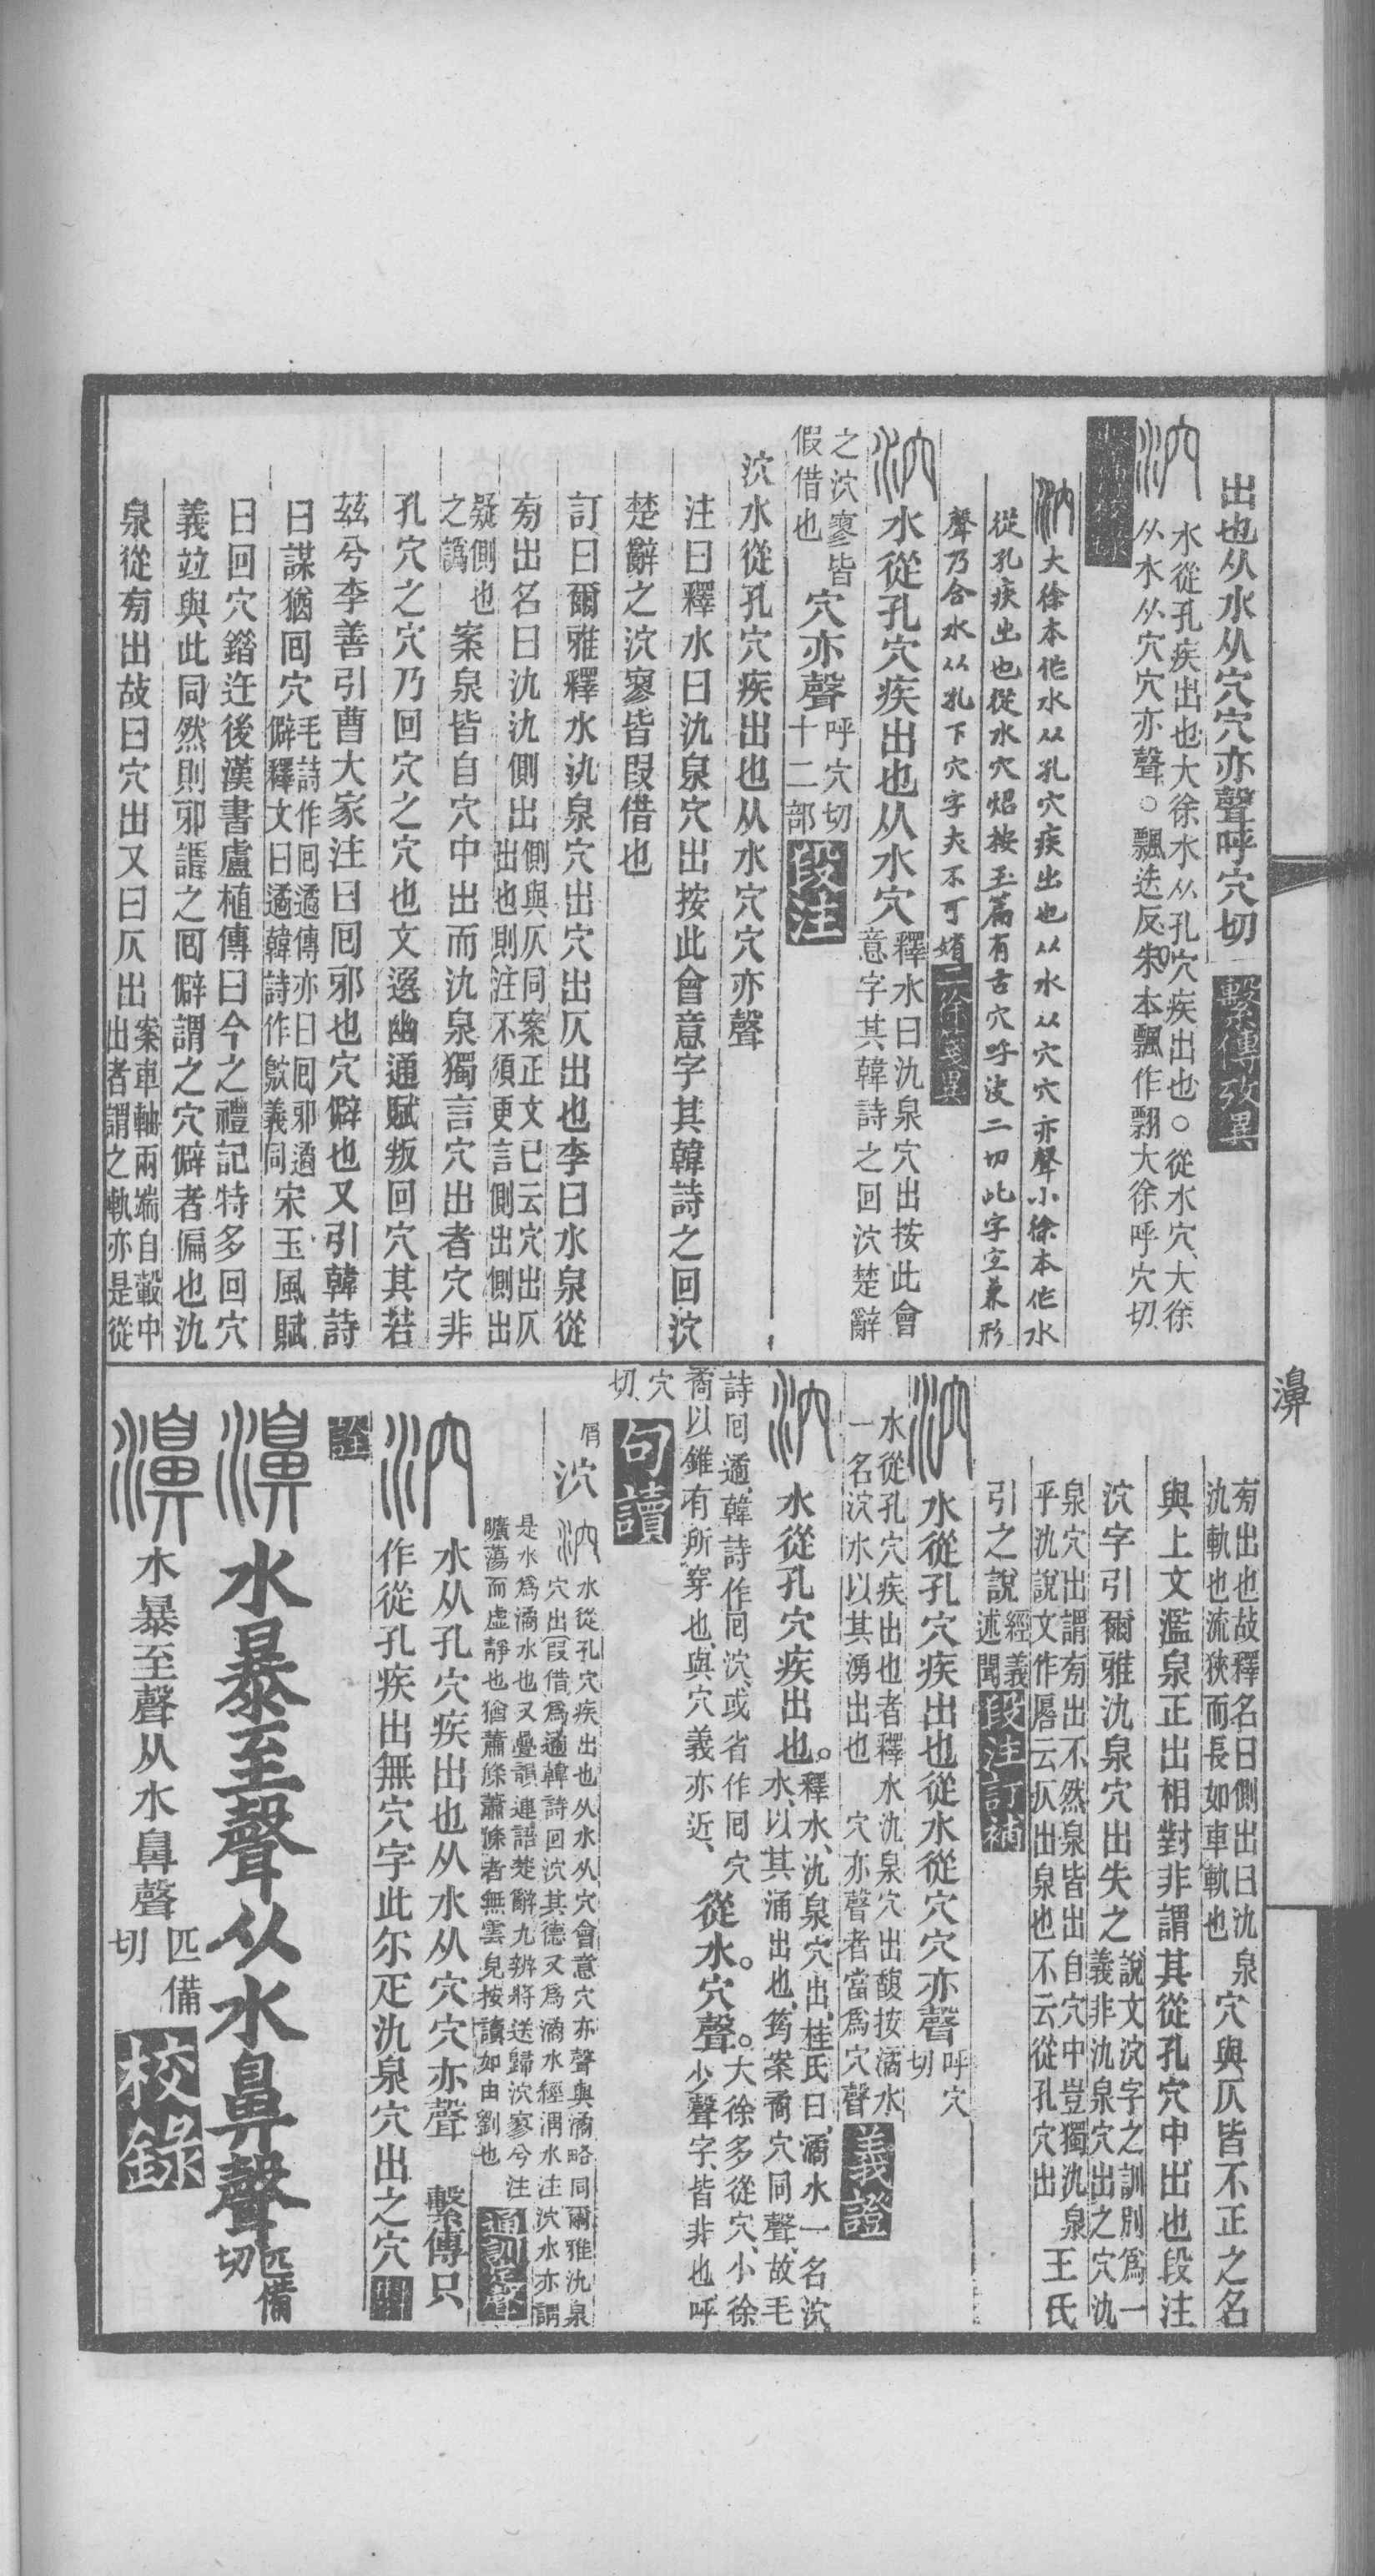 出也从水从穴穴亦聲呼穴切 繫傳攷異
水從孔疾出也大徐水从孔穴疾出也○從水穴大徐
从水从穴穴亦聲○飄迭反朱本飄作翲大徐呼穴切
大徐本作水从孔穴疾出也从水从穴穴亦聲小徐本作水
從孔疾出也從水穴炤按玉篇有古穴呼決二切此字宜兼形
聲乃合水从孔下穴字夫不可婧 二徐箋異
水從孔穴疾出也从水穴
釋水曰氿泉穴出按此會
意字其韓詩之回泬楚辭
之泬寥皆
假借也
穴亦聲
呼穴切
十二部
段注
泬水從孔穴疾出也从水穴穴亦聲
注曰釋水曰氿泉穴出按此會意字其韓詩之回泬
楚辭之泬寥皆叚借也
訂曰爾雅釋水氿泉穴出穴出仄出也李曰水泉從
㫄出名曰氿氿側出
側與仄同案正文已云穴出仄
出也則注不須更言側出側出
疑側也
之譌
案泉皆自穴中出而氿泉獨言穴出者穴非
孔穴之穴乃回穴之穴也文選幽通賦叛回穴其若
茲兮李善引曹大家注曰囘邪也穴僻也又引韓詩
曰謀猶囘穴
毛詩作囘遹傳亦曰囘邪遹
僻釋文曰遹韓詩作歍義同
宋玉風賦
曰回穴錯迕後漢書盧植傳曰今之禮記特多回穴
義竝與此同然則邪謂之囘僻謂之穴僻者偏也氿
泉從㫄出故曰穴出又曰仄出
案車軸兩耑自轂中
出者謂之軌亦是從
㫄出也故釋名曰側出曰氿
氿軌也流狹而長如車軌也
泉穴與仄皆不正之名
與上文濫泉正出相對非謂其從孔穴中出也段注
泬字引爾雅氿泉穴出失之
說文泬字之訓別爲一
義非氿泉穴出之穴氿
泉穴出謂㫄出不然泉皆出自穴中豈獨氿泉
乎氿說文作厬云仄出泉也不云從孔穴出
王氏
引之說
經義
述聞
段注訂補
水從孔穴疾出也從水從穴穴亦聲
呼穴
切
水從孔穴疾出也者釋水氿泉穴出馥按潏水
一名泬水以其湧出也 穴亦聲者當爲穴聲
義證
水從孔穴疾出也。
釋水、氿泉穴出、桂氏曰、潏水一名泬
水、以其涌出也、筠案矞穴同聲、故毛
詩囘遹、韓詩作回泬、或省作囘穴
矞以錐有所穿也、與穴義亦近、
從水。穴聲。
大徐多從穴、小徐
少聲字、皆非也、呼
穴
切、
句讀
屑
泬
水從孔穴疾出也从水从穴會意穴亦聲與潏略同爾雅氿泉
穴出叚借爲遹韓詩回泬其德又爲潏水經渭水注泬水亦謂
是水爲潏水也又疊韻連語楚辭九辨將送歸泬寥兮注
曠蕩而虛靜也猶蕭條蕭條者無雲皃按讀如由劉也
通訓定聲
水从孔穴疾出也从水从穴穴亦聲 繫傳只
作從孔疾出無穴字此尔疋氿泉穴出之穴
斠
詮
水暴至聲从水鼻聲
匹備
切
水暴至聲从水鼻聲
匹備
切
校錄
濞